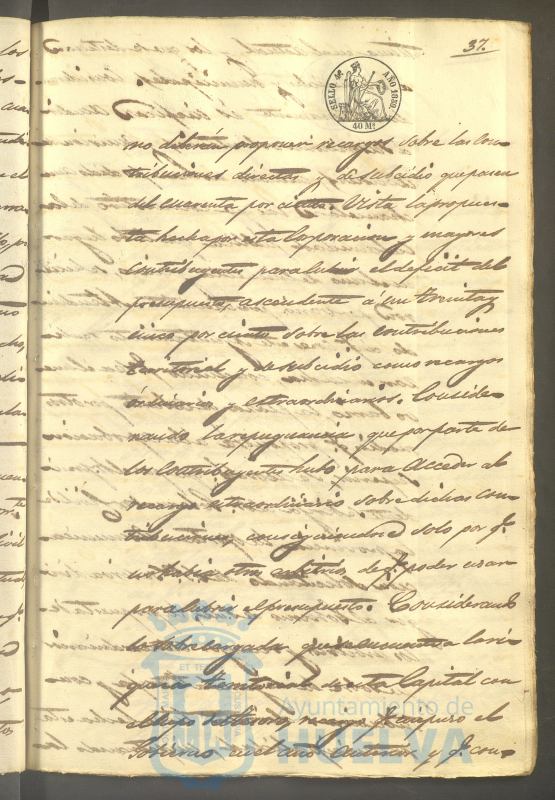 37.
SELLO 4º AÑO 1859.
40 Ms
no deberán proponer recargos sobre las con-
tribuciones directas y de subsidio que pasen
del cuarenta por ciento. Vista la propues-
ta hecha por esta Corporacion y mayores
contribuyentes para cubrir el deficit del
presupuesto, ascendente á un treinta y
cinco por ciento sobre las contribuciones
territorial y de subsidio como recargos
ordinarios y estraordinarios. Conside-
rando la repugnancia, que por parte de
los contribuyentes hubo para acceder al
recargo estraordinario sobre dichas con-
tribuciones, solo por qe
no habia otros arbitrios de qe poder usar
para cubrir el presupuesto. Considerando
lo recargada que se encuentra la ri-
queza territorial de esta Capital con
el recargo qe impuso el
Gobierno en el año anterior y qe con-
ET TE
Ayuntamiento de
HUELVA